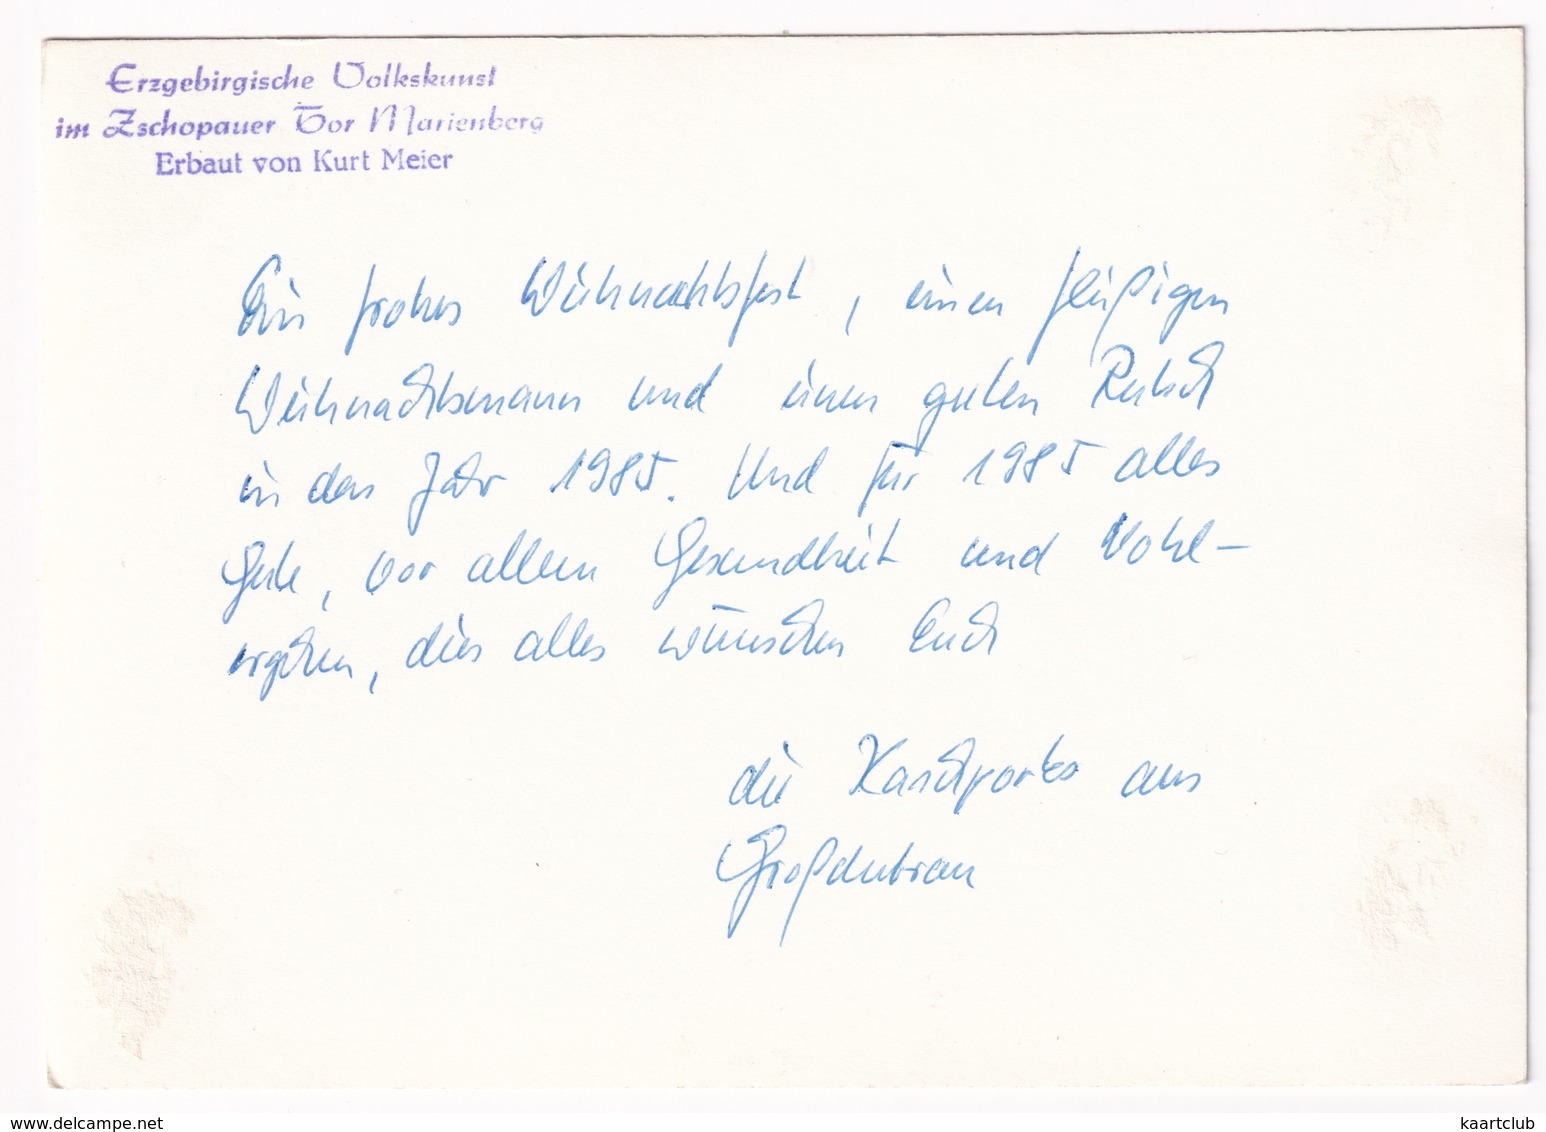 Erzgebirgische Volkskunst
im Zschopauer Tor Marienberg
Erbaut von Kurt Meier
Ein frohes Weihnachtsfest, einen fleißigen
Weihnachtsmann und einen guten Rutsch
in das Jahr 1985. Und für 1985 alles
Gute, vor allem Gesundheit und Wohl-
ergehen, dies alles wünschen Euch
die aus
Großdubrau
www.delcampe.net
kaartclub